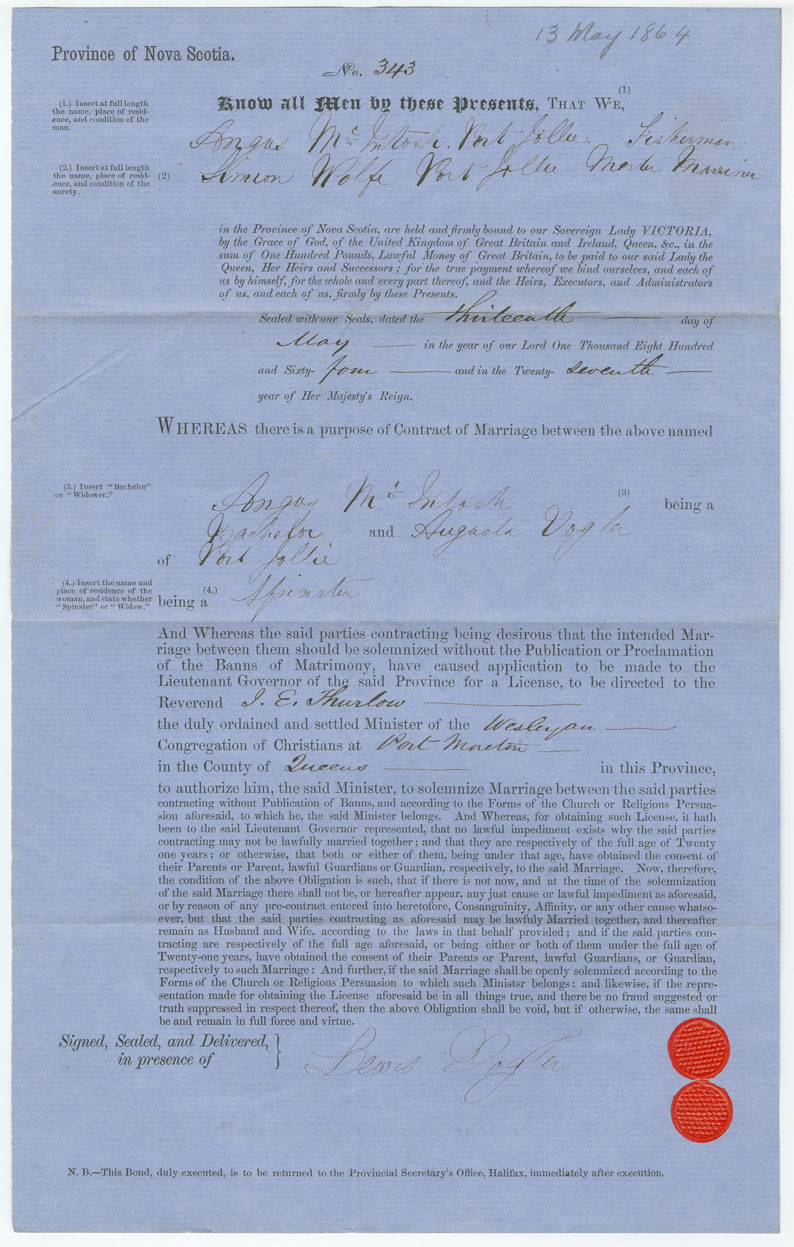 13 May 1864
Province of Nova Scotia.
No. 343
(1.) Insert at full length
the name, place of resid-
ence, and condition of the
man.
(1)
Know all Men by these Presents, THAT WE,
Angus Mc Intosh. Port Jollie. Fisherman
(2.) Insert at full length
the name, place of resid-
ence, and condition of the
surety.
(2) Simeon Wolfe Port Jollie Master Mariner
in the Province of Nova Scotia, are held and firmly bound to our Sovereign Lady VICTORIA,
by the Grace of God, of the United Kingdom of Great Britain and Ireland, Queen, &c., in the
sum of One Hundred Pounds, Lawful Money of Great Britain, to be paid to our said Lady the
Queen, Her Heirs and Successors; for the true payment whereof we bind ourselves, and each of
us by himself, for the whole and every part thereof, and the Heirs, Executors, and Administrators
of us, and each of us, firmly by these Presents.
Sealed with our Seals, dated the thirteenth day of
May in the year of our Lord One Thousand Eight Hundred
and Sixty- four and in the Twenty- seventh
year of Her Majesty's Reign.
WHEREAS there is a purpose of Contract of Marriage between the above named
(3.) Insert "Bachelor"
or "Widower."
Angus Mc Intosh (3) being a
Bachelor and Augusta Vogler
of Port Jollie
(4.) Insert the name and
place of residence of the
woman, and state whether
"Spinster" or "Widow."
being a (4.) Spinster
And Whereas the said parties contracting being desirous that the intended Mar-
riage between them should be solemnized without the Publication or Proclamation
of the Banns of Matrimony, have caused application to be made to the
Lieutenant Governor of the said Province for a License, to be directed to the
Reverend I. E. Thurlow
the duly ordained and settled Minister of the Wesleyan
Congregation of Christians at Port Moeton
in the County of Queens in this Province,
to authorize him, the said Minister, to solemnize Marriage between the said parties
contracting without Publication of Banns, and according to the Forms of the Church or Religious Persua-
sion aforesaid, to which he, the said Minister belongs. And Whereas, for obtaining such License, it hath
been to the said Lieutenant Governor represented, that no lawful impediment exists why the said parties
contracting may not be lawfully married together; and that they are respectively of the full age of Twenty
one years; or otherwise, that both or either of them, being under that age, have obtained the consent of
their Parents or Parent, lawful Guardians or Guardian, respectively, to the said Marriage. Now, therefore,
the condition of the above Obligation is such, that if there is not now, and at the time of the solemnization
of the said Marriage there shall not be, or hereafter appear, any just cause or lawful impediment as aforesaid,
or by reason of any pre-contract entered into heretofore, Consanguinity, Affinity, or any other cause whatso-
ever, but that the said parties contracting as aforesaid may be lawfuly Married together, and thereafter
remain as Husband and Wife, according to the laws in that behalf provided; and if the said parties con-
tracting are respectively of the full age aforesaid, or being either or both of them under the full age of
Twenty-one years, have obtained the consent of their Parents or Parent, lawful Guardians, or Guardian,
respectively to such Marriage: And further, if the said Marriage shall be openly solemnized according to the
Forms of the Church or Religious Persuasion to which such Ministsr belongs: and likewise, if the repre-
sentation made for obtaining the License aforesaid be in all things true, and there be no fraud suggested or
truth suppressed in respect thereof, then the above Obligation shall be void, but if otherwise, the same shall
be and remain in full force and virtue.
Signed, Sealed, and Delivered,
in presence of
Lewis Vogler
N. B.—This Bond, duly executed, is to be returned to the Provincial Secretary's Office, Halifax, immediately after execution.